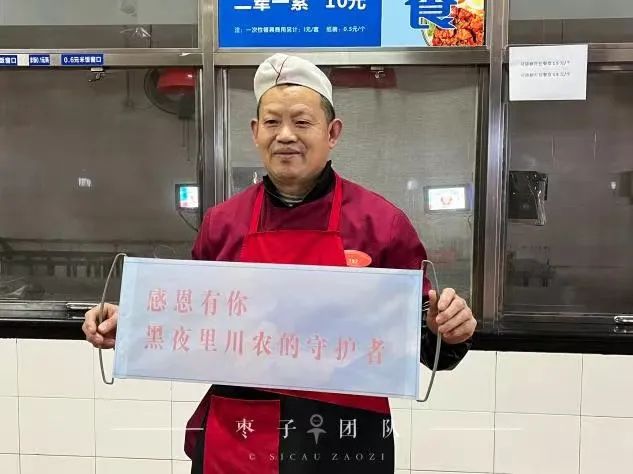 二荤一素 10元
食
注:一次性餐具费用另计:1元/套
0.6元米饭窗口
感恩有你
黑夜里川农的守护者
枣子团队
© SICAU ZAOZI